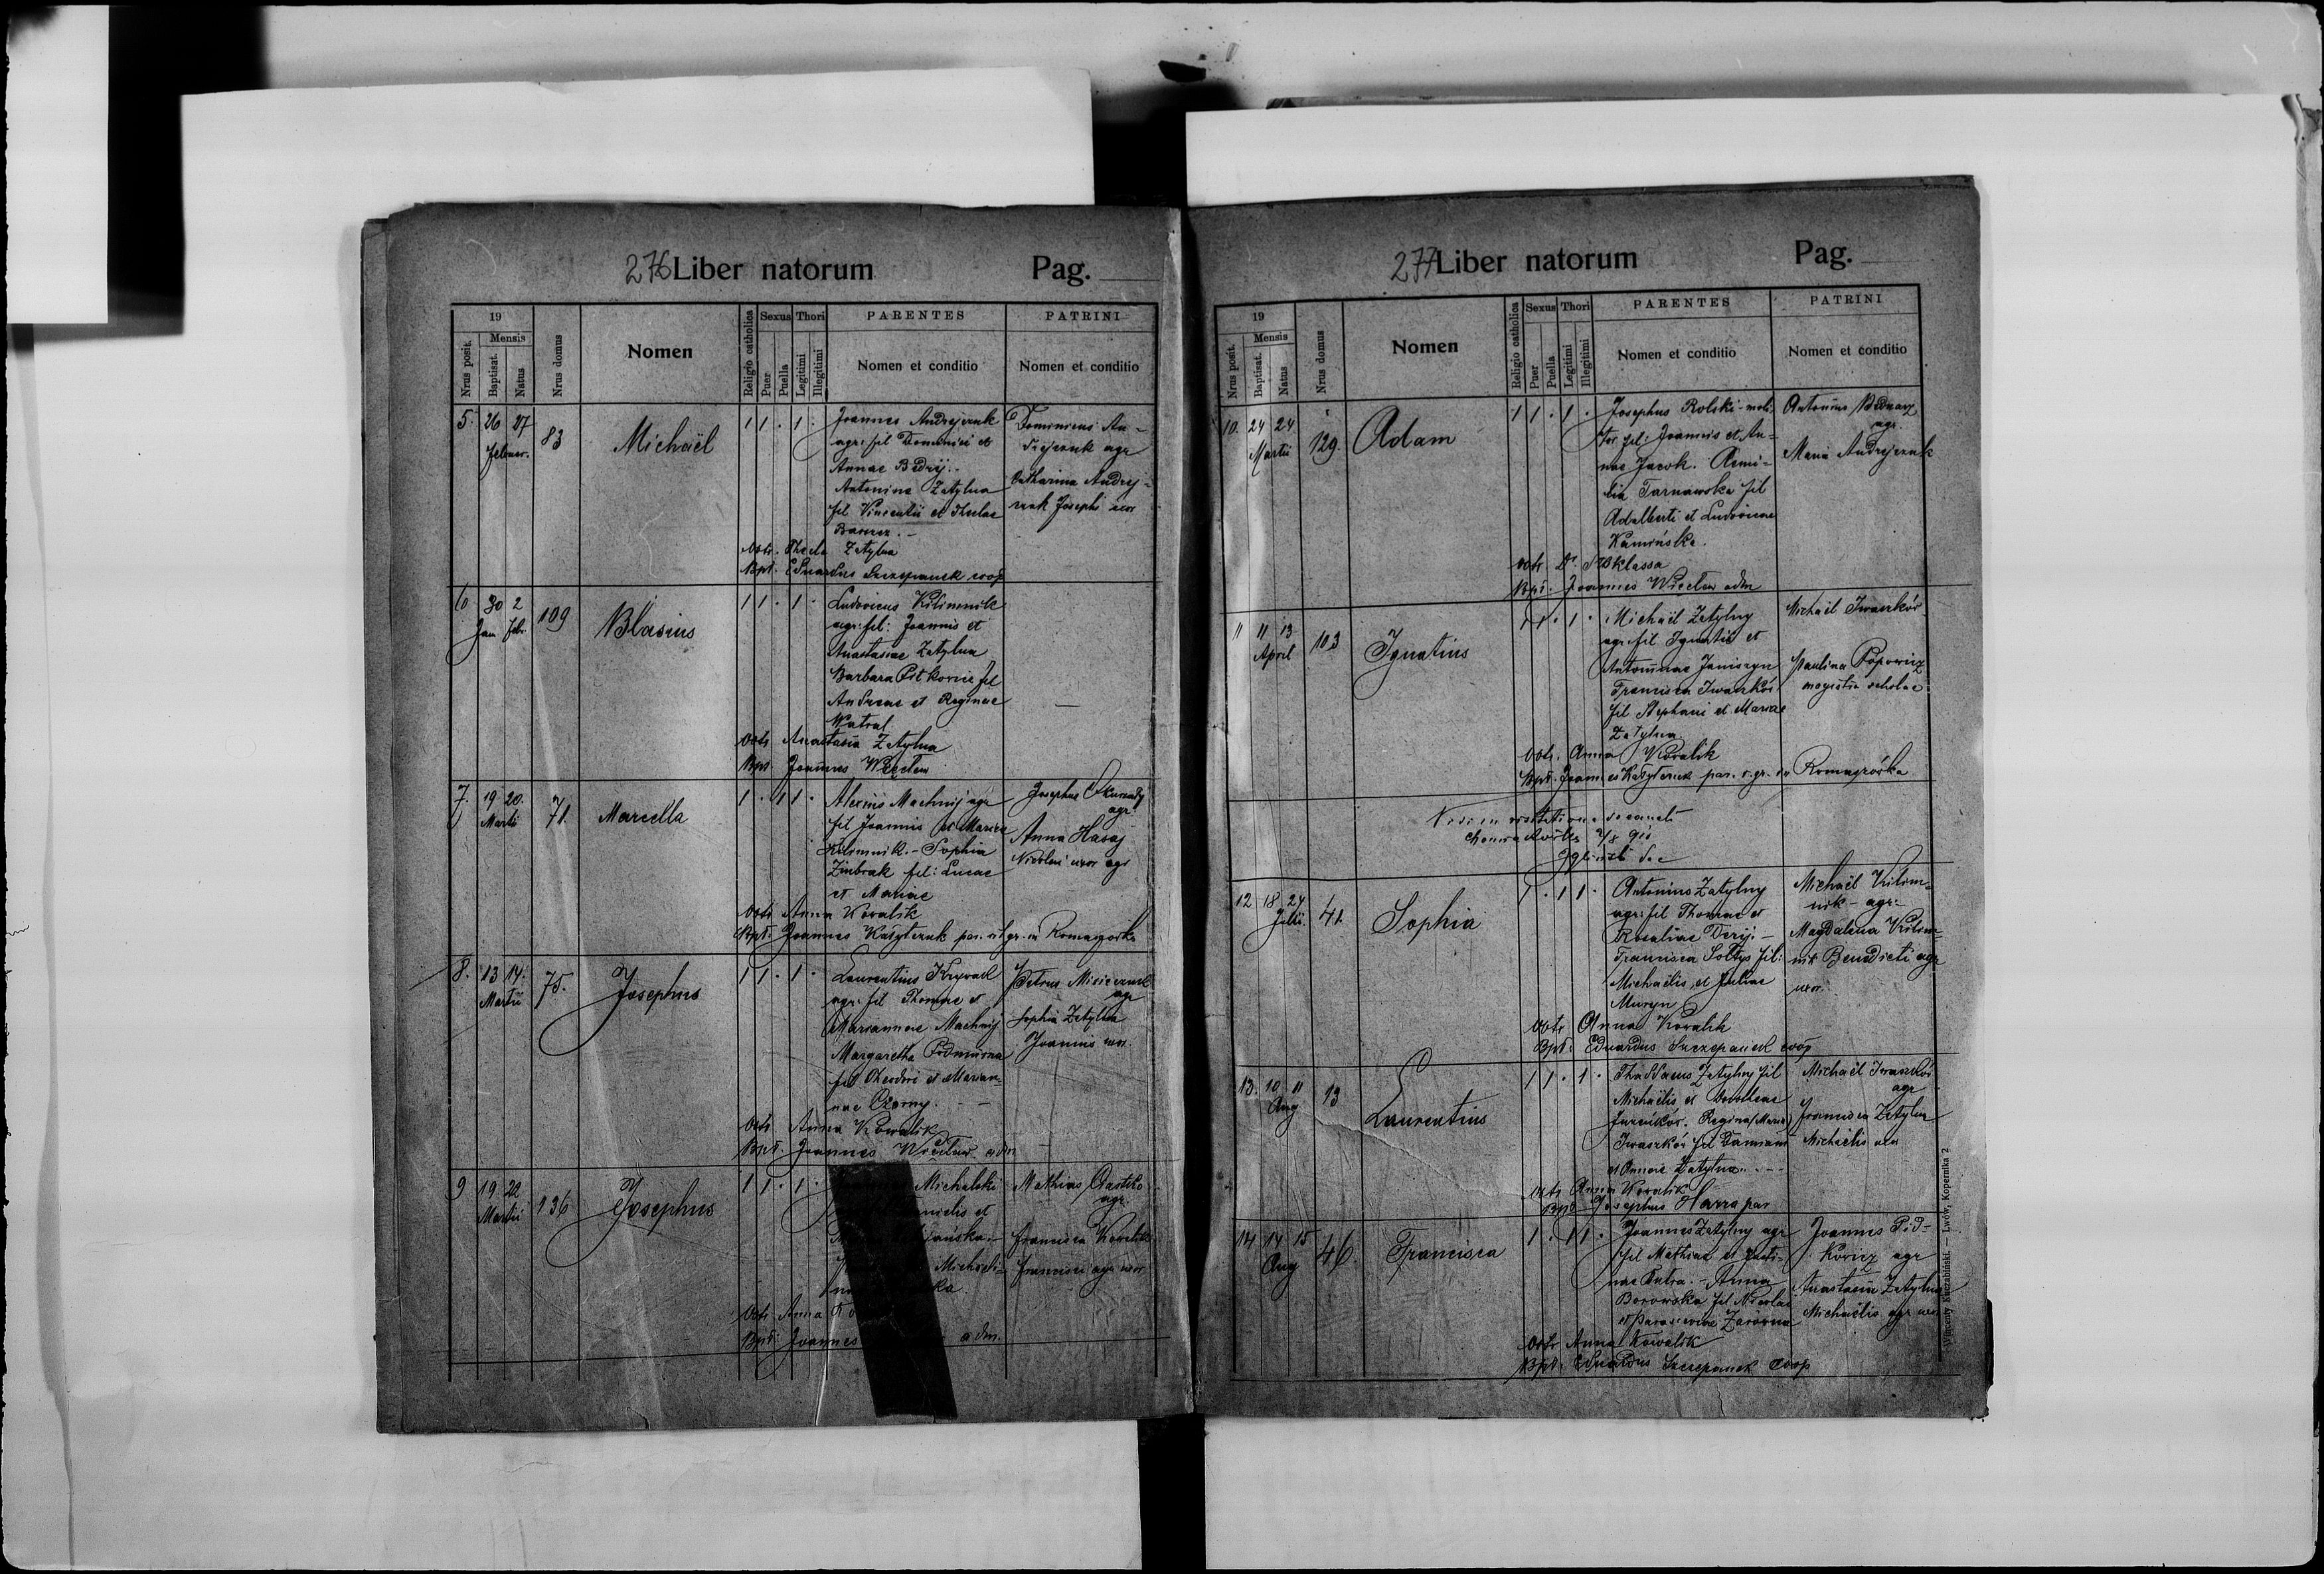 276 Liber natorum Pag.
19
Mensis
Nrus posit.
Baptisat.
Natus
Nrus domus
Nomen
Religio catholica
Sexus
Puer
Puella
Thori
Legitimi
Illegitimi
PARENTES
Nomen et conditio
PATRINI
Nomen et conditio
5. 26 27 Februar. 83 Michaël 1 1 · 1 ·
Joannes Andrejczuk
agr: fil Dominici et
Annae Bedrij. -
Antonina Zatylna
fil Vincentii et Theclae
Dominicus An-
drejczuk agr
Catharina Andrej-
czuk Josephi uxor
Obstr. Thecla Zatylna
Bpt. Eduardus Szczepanek coop
6 30 2 Jan Febr. 109 Blasius 1 1 · 1 ·
Ludovicus Kilimnik
agr: fil: Joannis et
Anastasiae Zatylna
Barbara fil
Andreae et Reginae
Watral
Obstr Anastasia Zatylna
Bpt. Joannes Więcław
7. 19 20. Martii 71 Marcella 1 · 1 1 ·
Alexius Machnij agr
fil Joannis et Mariae
Kilimnik. - Sophia
Zimbrak fil: Lucae
et Mariae
Josephus
agr
Anna Hasaj
Nicolai uxor agr
Obstr Anna Kowalik
Bpt. Joannes par. rit gr. in Romazówka
8. 13 14. Martii 75. Josephus 1 1 · 1 ·
Laurentius
agr: fil Thomae et
Mariannae Machnij
Margaretha
fil Theodori et Marian-
nae Czorny. -
Petrus
agr
Sophia Zatylna
Joannis uxor.
Obstr Anna Kowalik
Bpt. Joannes Więcław adm
9 19 22 Martii 136 Josephus 1 1 · 1 ·
Michalski
et
Mathias
agr
Francisca Kowalik
Francisci agr uxor
Obstr Anna
Bpt: Joannes adm.
277 Liber natorum Pag.
19
Mensis
Nrus posit.
Baptisat.
Natus
Nrus domus
Nomen
Religio catholica
Sexus
Puer
Puella
Thori
Legitimi
Illegitimi
PARENTES
Nomen et conditio
PATRINI
Nomen et conditio
10. 24 24 Martii 129. Adam 1 1 · 1 ·
Josephus Rolski moli-
tor fil: Joannis et An-
nae Jacok. Aemi-
lia Tarnawska fil
Adalberti et Ludovicae
Kamińska.
Antonius Bednarz
agr.
Maria Andrejczuk
Obstr. Dr.
Bpt. Joannes Więcław adm
11 11 13 April 103 Ignatius 1 1 · 1 ·
Michaël Zatylny
agr: fil Ignatii et
Antoninae Janiszyn
Francisca Iwaszków
fil Stephani et Mariae
Zatylna.
Michaël Iwaszków
Paulina Popowicz
magistra scholae
Obstr. Anna Kowalik
Bpt. Joannes par. r. gr. in Romazówka
in visitatione decanali
12 18 24 Julii 41. Sophia 1 · 1 1 ·
Antonius Zatylny
agr: fil Thomae et
Rosaliae
Francisca Sołtys fil:
Michaelis et Juliae
Muryn
Michaël Kilim-
nik - agr. -
Magdalena Kilim-
nik Benedicti agr
uxor.
Obstr Anna Kowalik
Bpt. Eduardus Szczepanek coop
13. 10 11 Aug 13 Laurentius 1 1 · 1 ·
Thaddaeus Zatylny fil
Michaëlis et
Regina (Maria)
Iwaszków fil Damiani
et Annae Zatylna.
Michaël Iwaszków
agr
Francisca Zatylna
Michaëlis uxor
Obstr Anna Kowalik
Bpt Josephus par
14 14 15 Aug 46. Francisca 1 · 1 1 ·
Joannes Zatylny agr
fil Mathiae et Justi-
nae - Anna
Borowska fil Nicolai
et Parascevae
Joannes Pid-
kowicz agr
Anastasia Zatylna
Michaëlis agr uxor
Obstr Anna Kowalik
Bpt. Eduardus Szczepanek coop
Wincenty Kuczabiński. Lwów, Kopernika 2